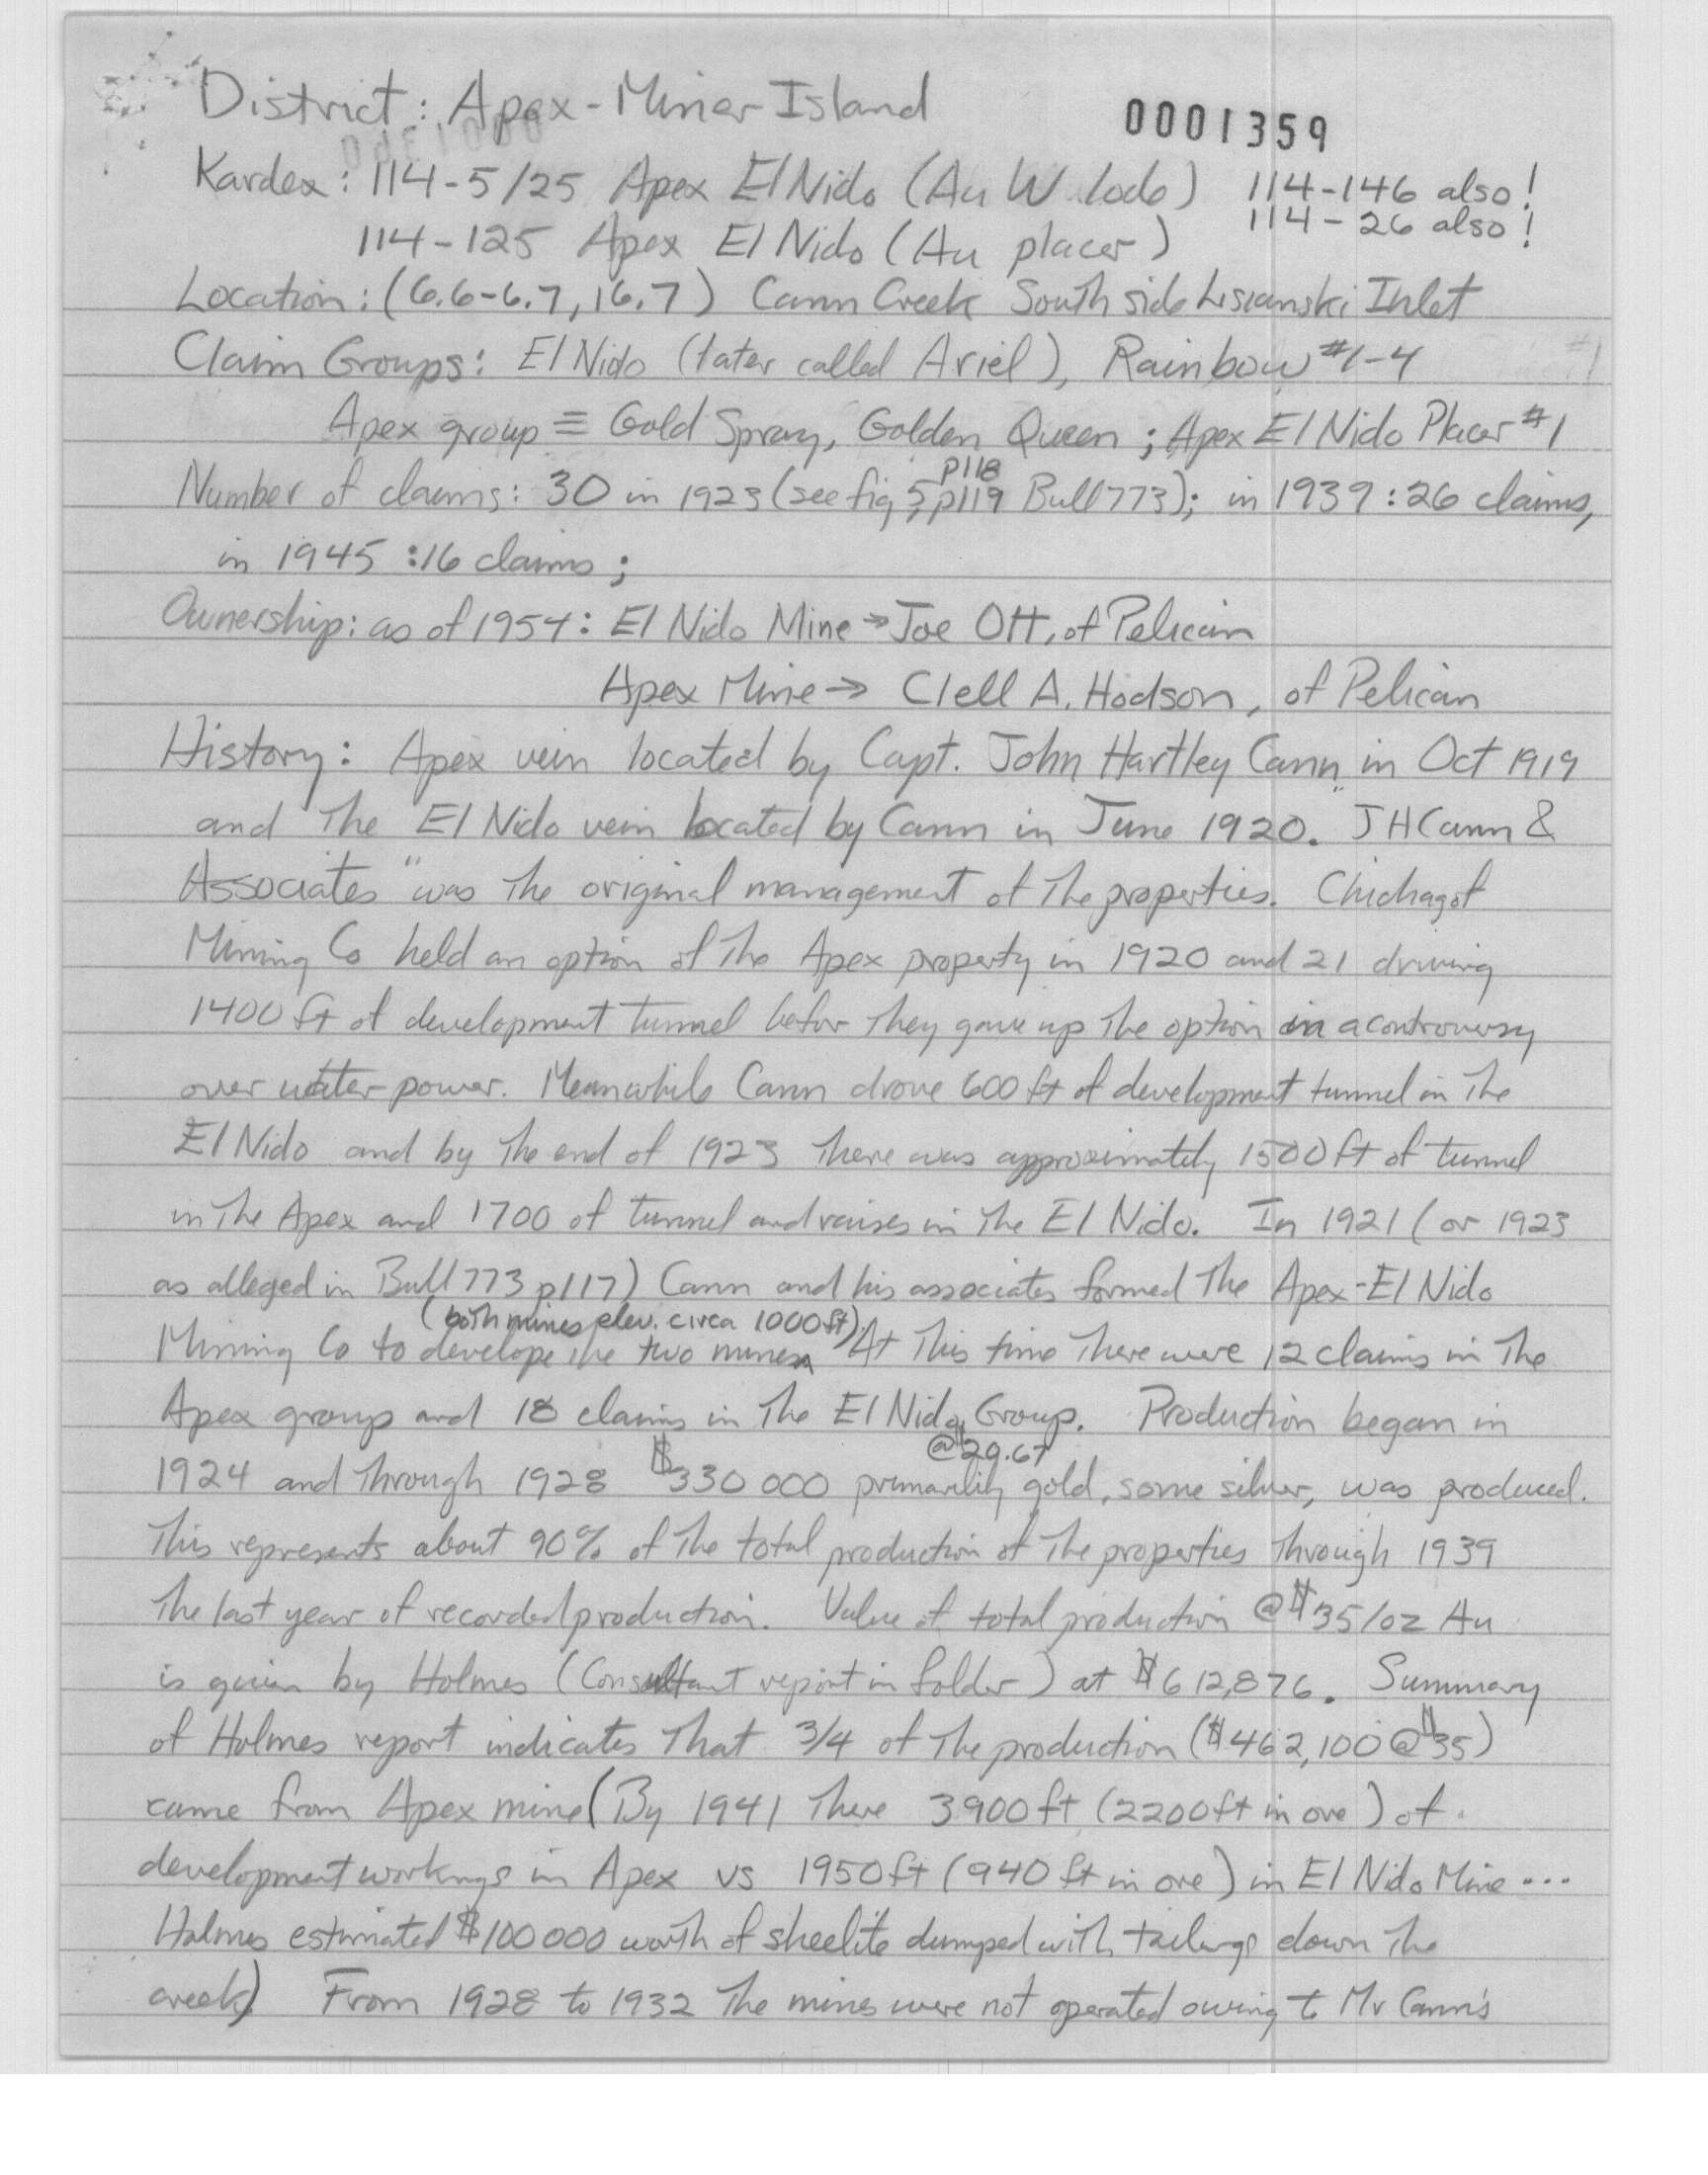 District: Apex-Miner Island
0001359
Kardex: 114-5/25 Apex El Nido (Au W lode) 114-146 also!
114-26 also!
114-125 Apex El Nido (Au placer)
Location: (6.6-6.7, 16.7) Cann Creek South side Lisianski Inlet
Claim Groups: El Nido (later called Ariel), Rainbow #1-4
Apex group ≡ Gold Spray, Golden Queen; Apex El Nido Placer #1
p118
Number of claims: 30 in 1923 (see fig 5, p119 Bull 773); in 1939: 26 claims,
in 1945: 16 claims;
Ownership: as of 1954: El Nido Mine → Joe Ott, of Pelican
Apex Mine → Clell A. Hodson, of Pelican
History: Apex vein located by Capt. John Hartley Cann in Oct 1919
and the El Nido vein located by Cann in June 1920. "JH Cann &
Associates" was the original management of the properties. Chichagof
Mining Co held an option of the Apex property in 1920 and 21 driving
1400 ft of development tunnel befor they gave up the option in a controversy
over water power. Meanwhile Cann drove 600 ft of development tunnel in the
El Nido and by the end of 1923 there was approximately 1500 ft of tunnel
in the Apex and 1700 of tunnel and raises in the El Nido. In 1921 (or 1923
as alleged in Bull 773 p117) Cann and his associates formed the Apex-El Nido
(both mines elev. circa 1000 ft)
Mining Co to develope the two mines. At this time there were 12 claims in the
Apex group and 18 claims in the El Nido Group. Production began in
@$20.67
1924 and through 1928 $330 000 primarily gold, some silver, was produced.
This represents about 90% of the total production of the properties through 1939
the last year of recorded production. Value of total production @ $35/oz Au
is given by Holmes (Consultant report in folder) at $612,876. Summary
of Holmes report indicates that 3/4 of the production ($462,100 @ $35)
came from Apex mine (By 1941 there 3900 ft (2200 ft in ore) of
development workings in Apex vs 1950 ft (940 ft in ore) in El Nido Mine ...
Holmes estimated $100 000 worth of sheelite dumped with tailings down the
creek) From 1928 to 1932 the mines were not operated owing to Mr Cann's